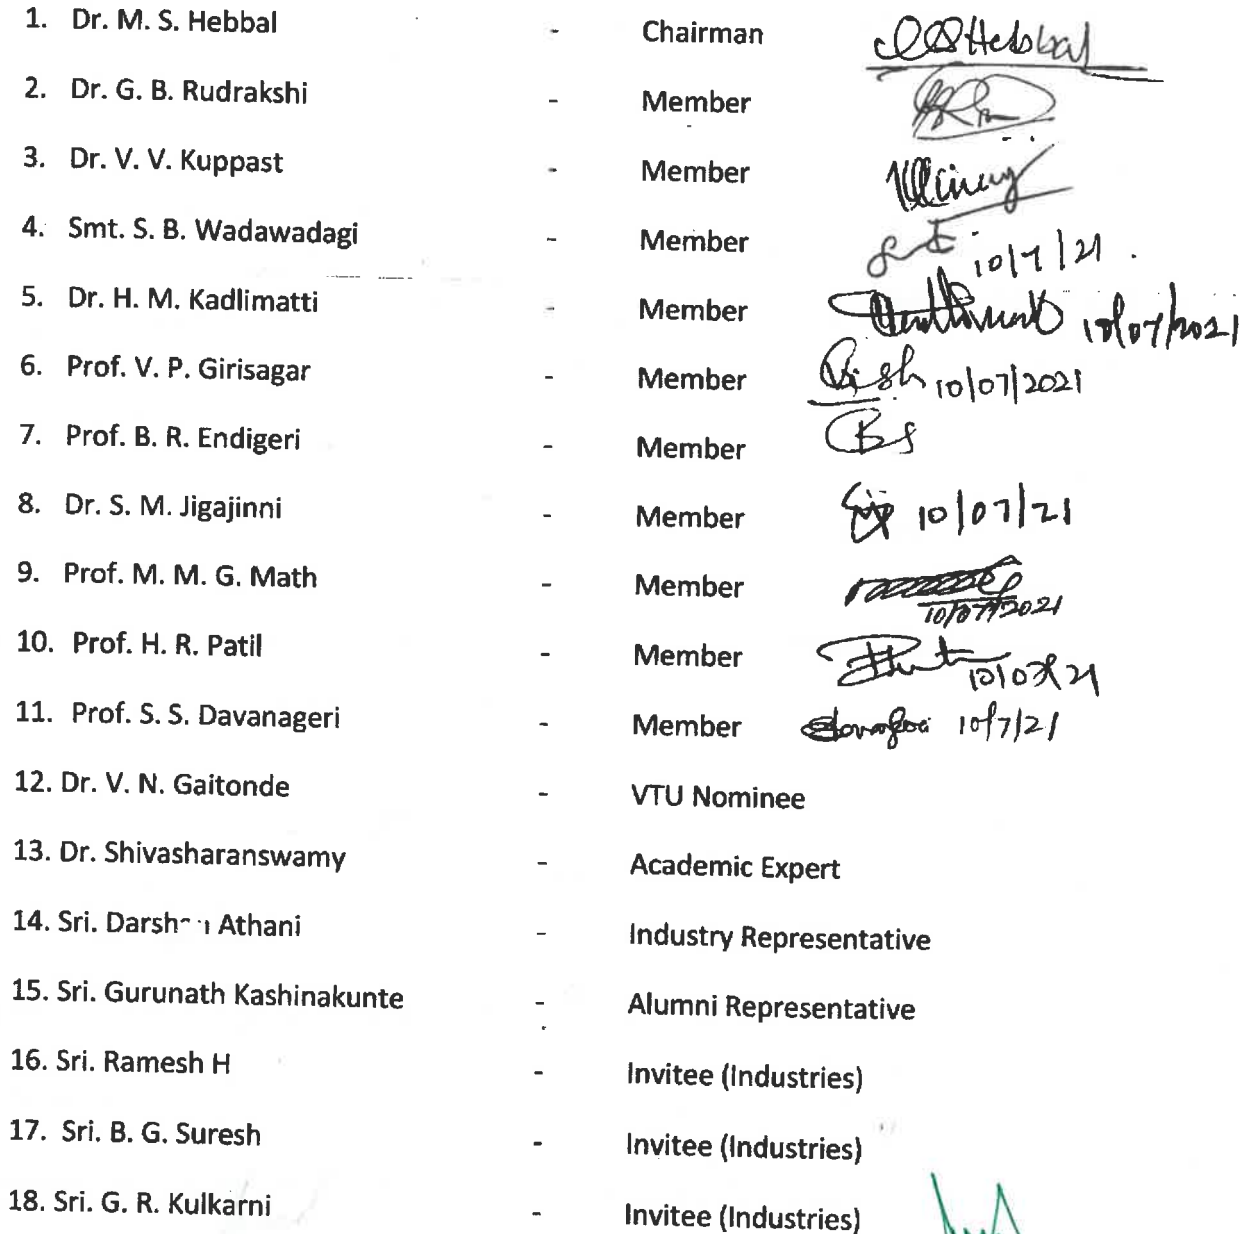 1. Dr. M. S. Hebbal - Chairman Hebbal
2. Dr. G. B. Rudrakshi - Member
3. Dr. V. V. Kuppast - Member
4. Smt. S. B. Wadawadagi - Member 10/7/21
5. Dr. H. M. Kadlimatti - Member 10/07/2021
6. Prof. V. P. Girisagar - Member 10/07/2021
7. Prof. B. R. Endigeri - Member
8. Dr. S. M. Jigajinni - Member 10/07/21
9. Prof. M. M. G. Math - Member 10/07/2021
10. Prof. H. R. Patil - Member 10/07/21
11. Prof. S. S. Davanageri - Member 10/7/21
12. Dr. V. N. Gaitonde - VTU Nominee
13. Dr. Shivasharanswamy - Academic Expert
14. Sri. Athani - Industry Representative
15. Sri. Gurunath Kashinakunte - Alumni Representative
16. Sri. Ramesh H - Invitee (Industries)
17. Sri. B. G. Suresh - Invitee (Industries)
18. Sri. G. R. Kulkarni - Invitee (Industries)